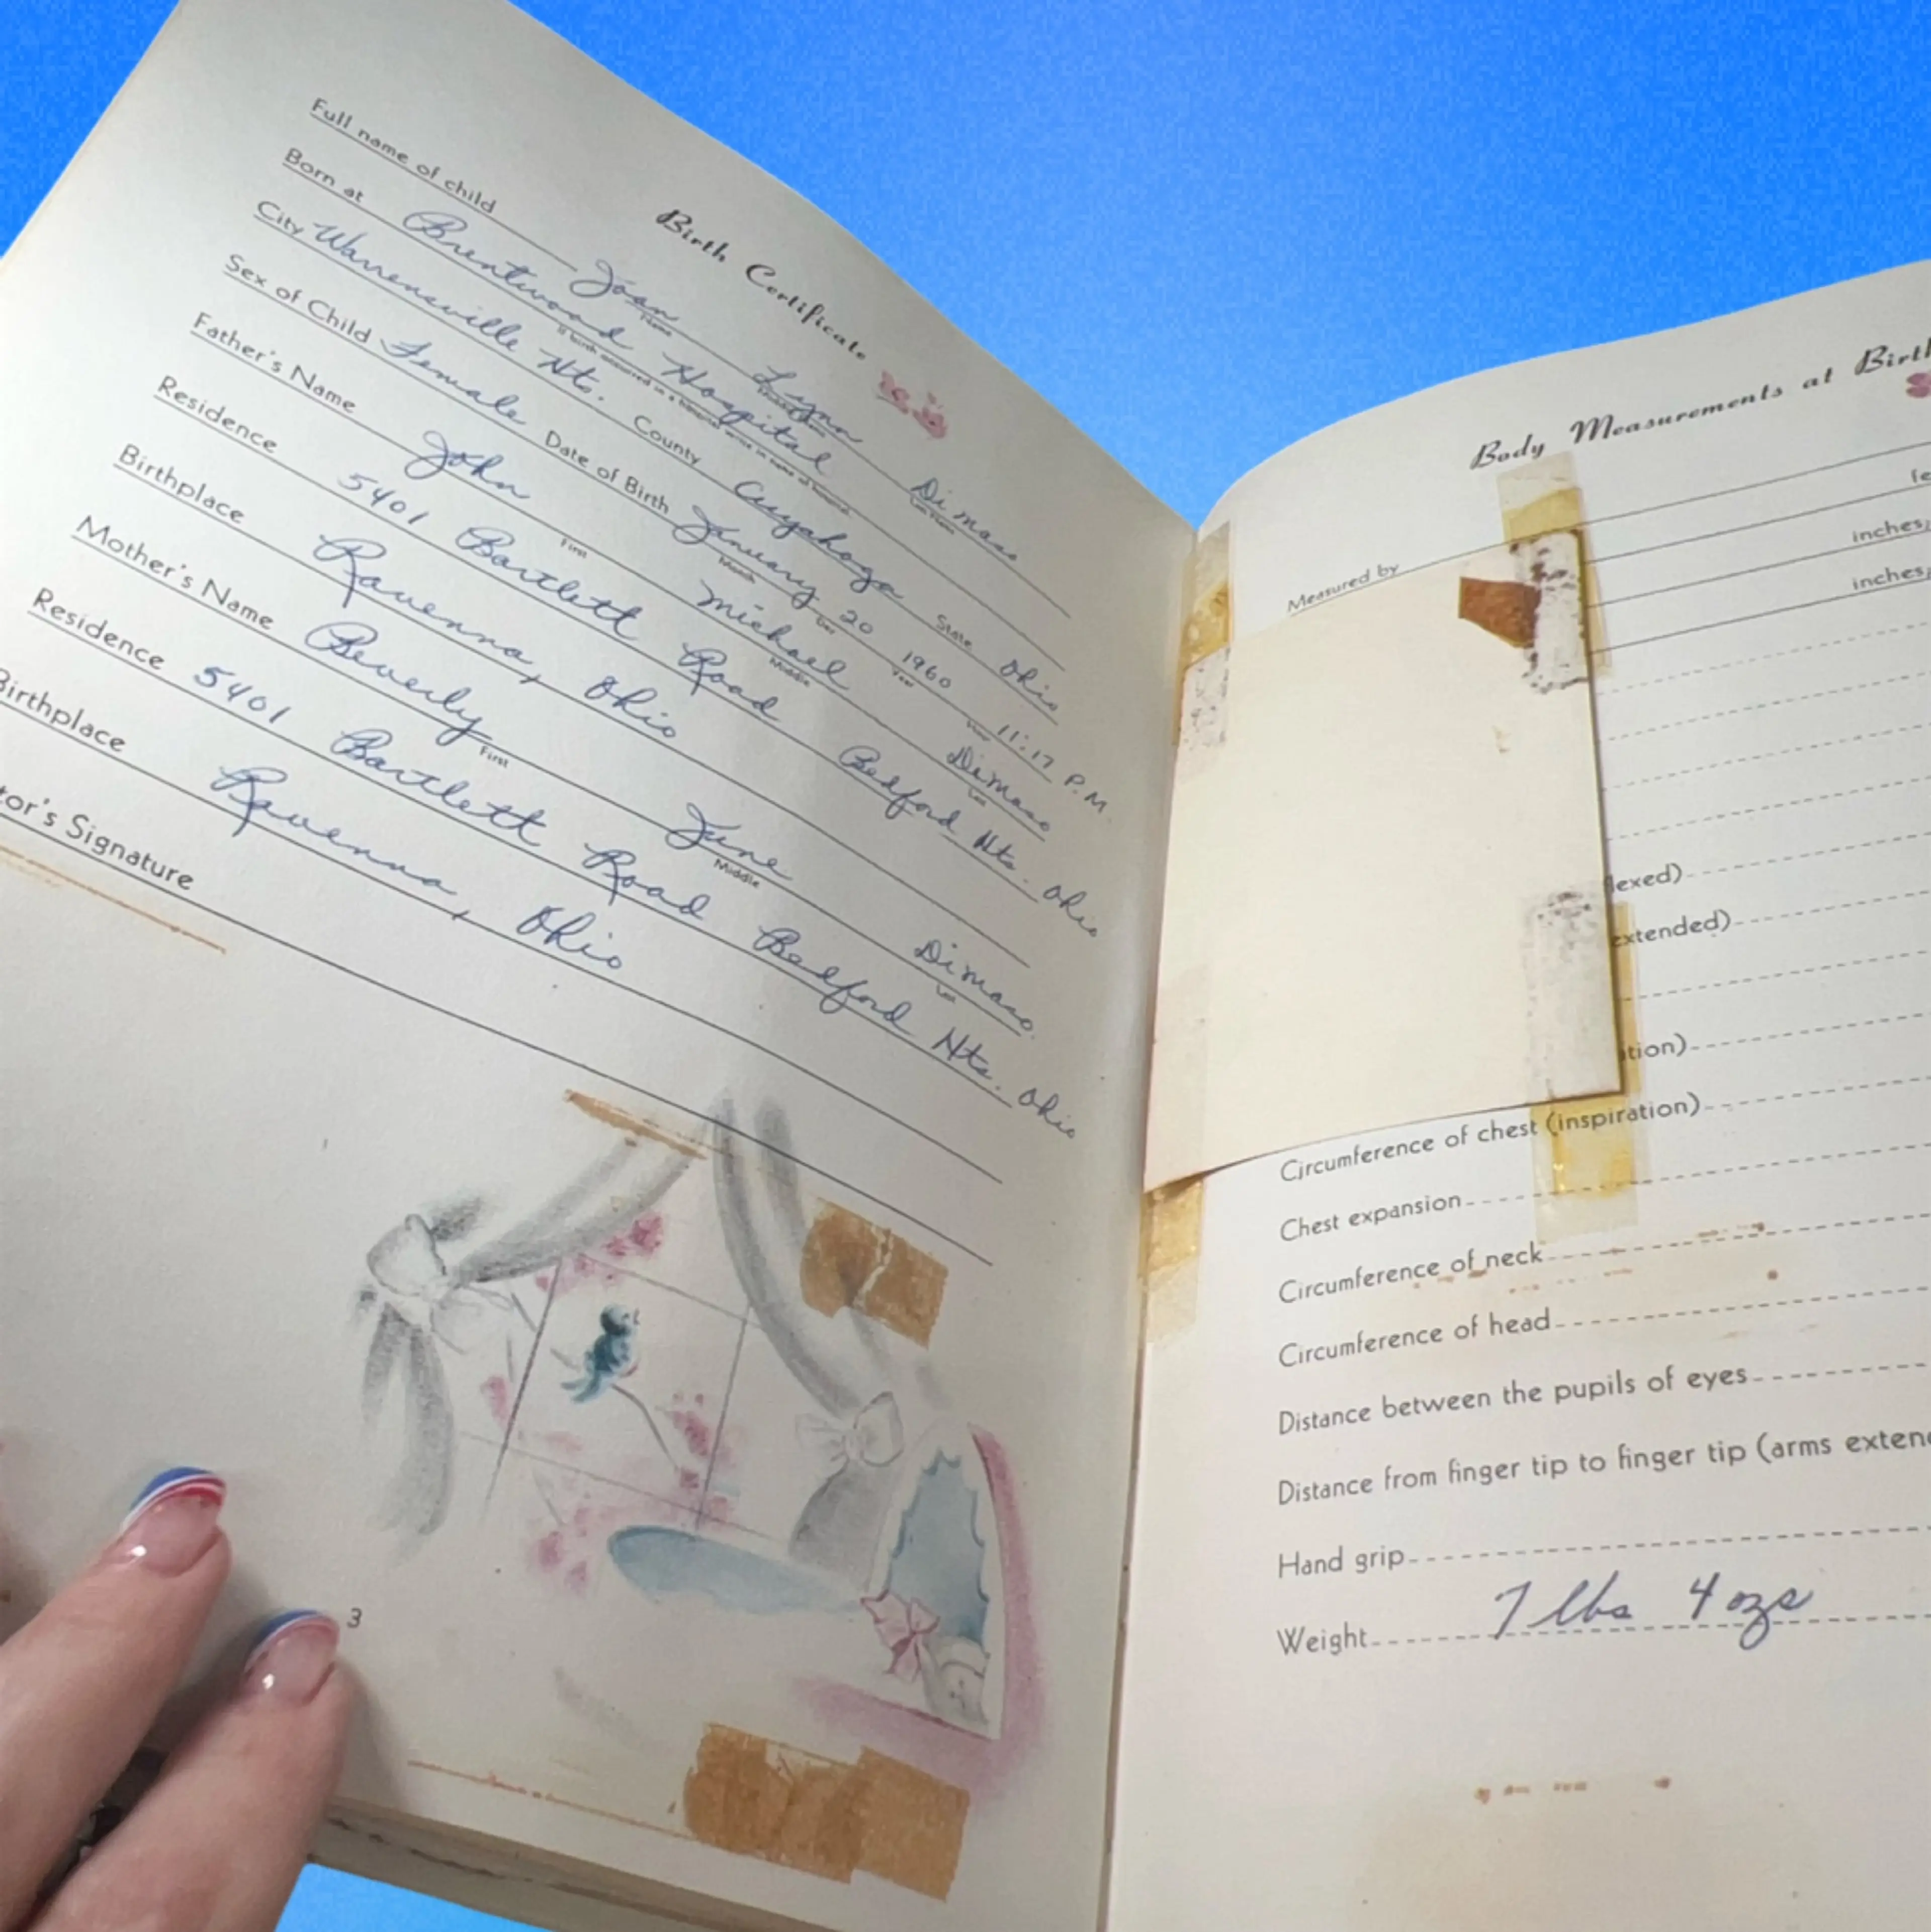 Birth Certificate
Full name of child Joan Lynn Dimaso
Name Middle Last Name
Born at Brentwood Hospital
If birth occurred in a hospital write in name of hospital
City Warrensville Hts. County Cuyahoga State Ohio
Sex of Child Female Date of Birth January 20 1960 11:17 P.M.
Month Day Year Hour
Father's Name John Michael Dimaso
First Middle Last
Residence 5401 Bartlett Road Bedford Hts. Ohio
Birthplace Ravenna, Ohio
Mother's Name Beverly June Dimaso
First Middle Last
Residence 5401 Bartlett Road Bedford Hts. Ohio
Birthplace Ravenna, Ohio
tor's Signature
3
Body Measurements at Birth
Measured by
fe
inches;
inches;
lexed)
extended)
tion)
Circumference of chest (inspiration)
Chest expansion
Circumference of neck
Circumference of head
Distance between the pupils of eyes
Distance from finger tip to finger tip (arms exten
Hand grip
Weight 7 lbs 4 ozs